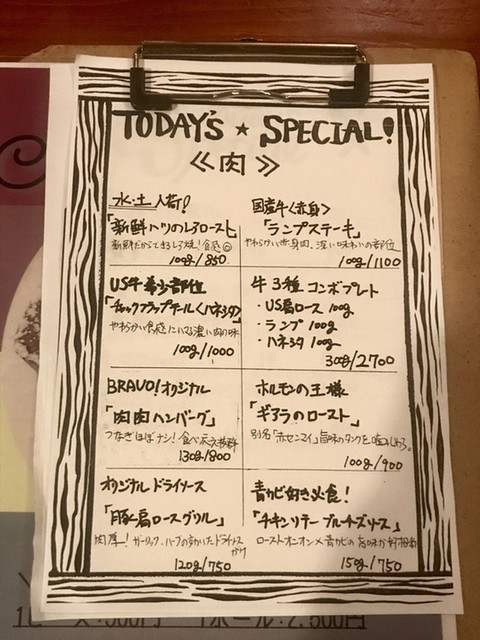 TODAY'S ★ SPECIAL!
≪肉≫
水・土 入荷!
「新鮮ハツのレアロースト」
新鮮だからできるレア焼!食感◎
100g/850
国産牛〈赤身〉
「ランプステーキ」
やわらかい赤身肉。深い味わいの部位
100g/1100
US牛希少部位
「チャックフラップテール〈ハネシタ〉」
やわらかい食感にハマる濃い肉の味
100g/1000
牛3種コンボプレト
・US肩ロース 100g
・ランプ 100g
・ハネシタ 100g
300g/2700
BRAVO!オリジナル
「肉肉ハンバーグ」
つなぎほぼナシ!食べ応え抜群
130g/800
ホルモンの王様
「ギアラのロースト」
別名「赤センマイ」旨味のタンクを
100g/900
オリジナルドライソース
「豚肩ロースグリル」
肉厚!ガーリック、ハーブの効いたドライソースがけ
120g/750
青カビ好き必食!
「チキンソテーブルーチーズソース」
ローストオニオン×青カビの旨味が好相性
150g/750